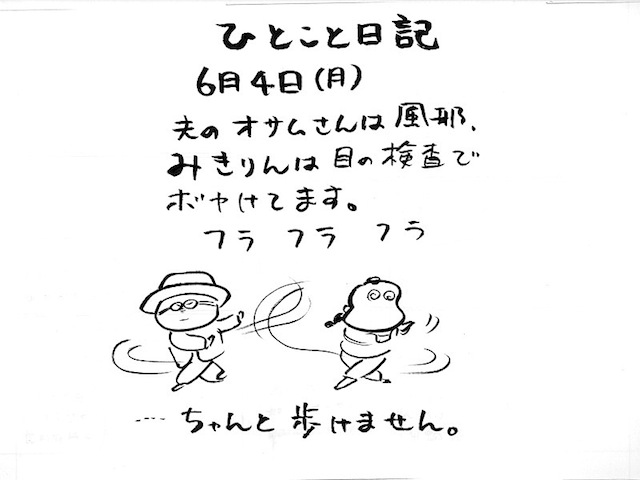 ひとこと日記
6月4日(月)
夫のオサムさんは風邪、
みきりんは目の検査で
ボヤけてます。
フラ フラ フラ
……ちゃんと歩けません。